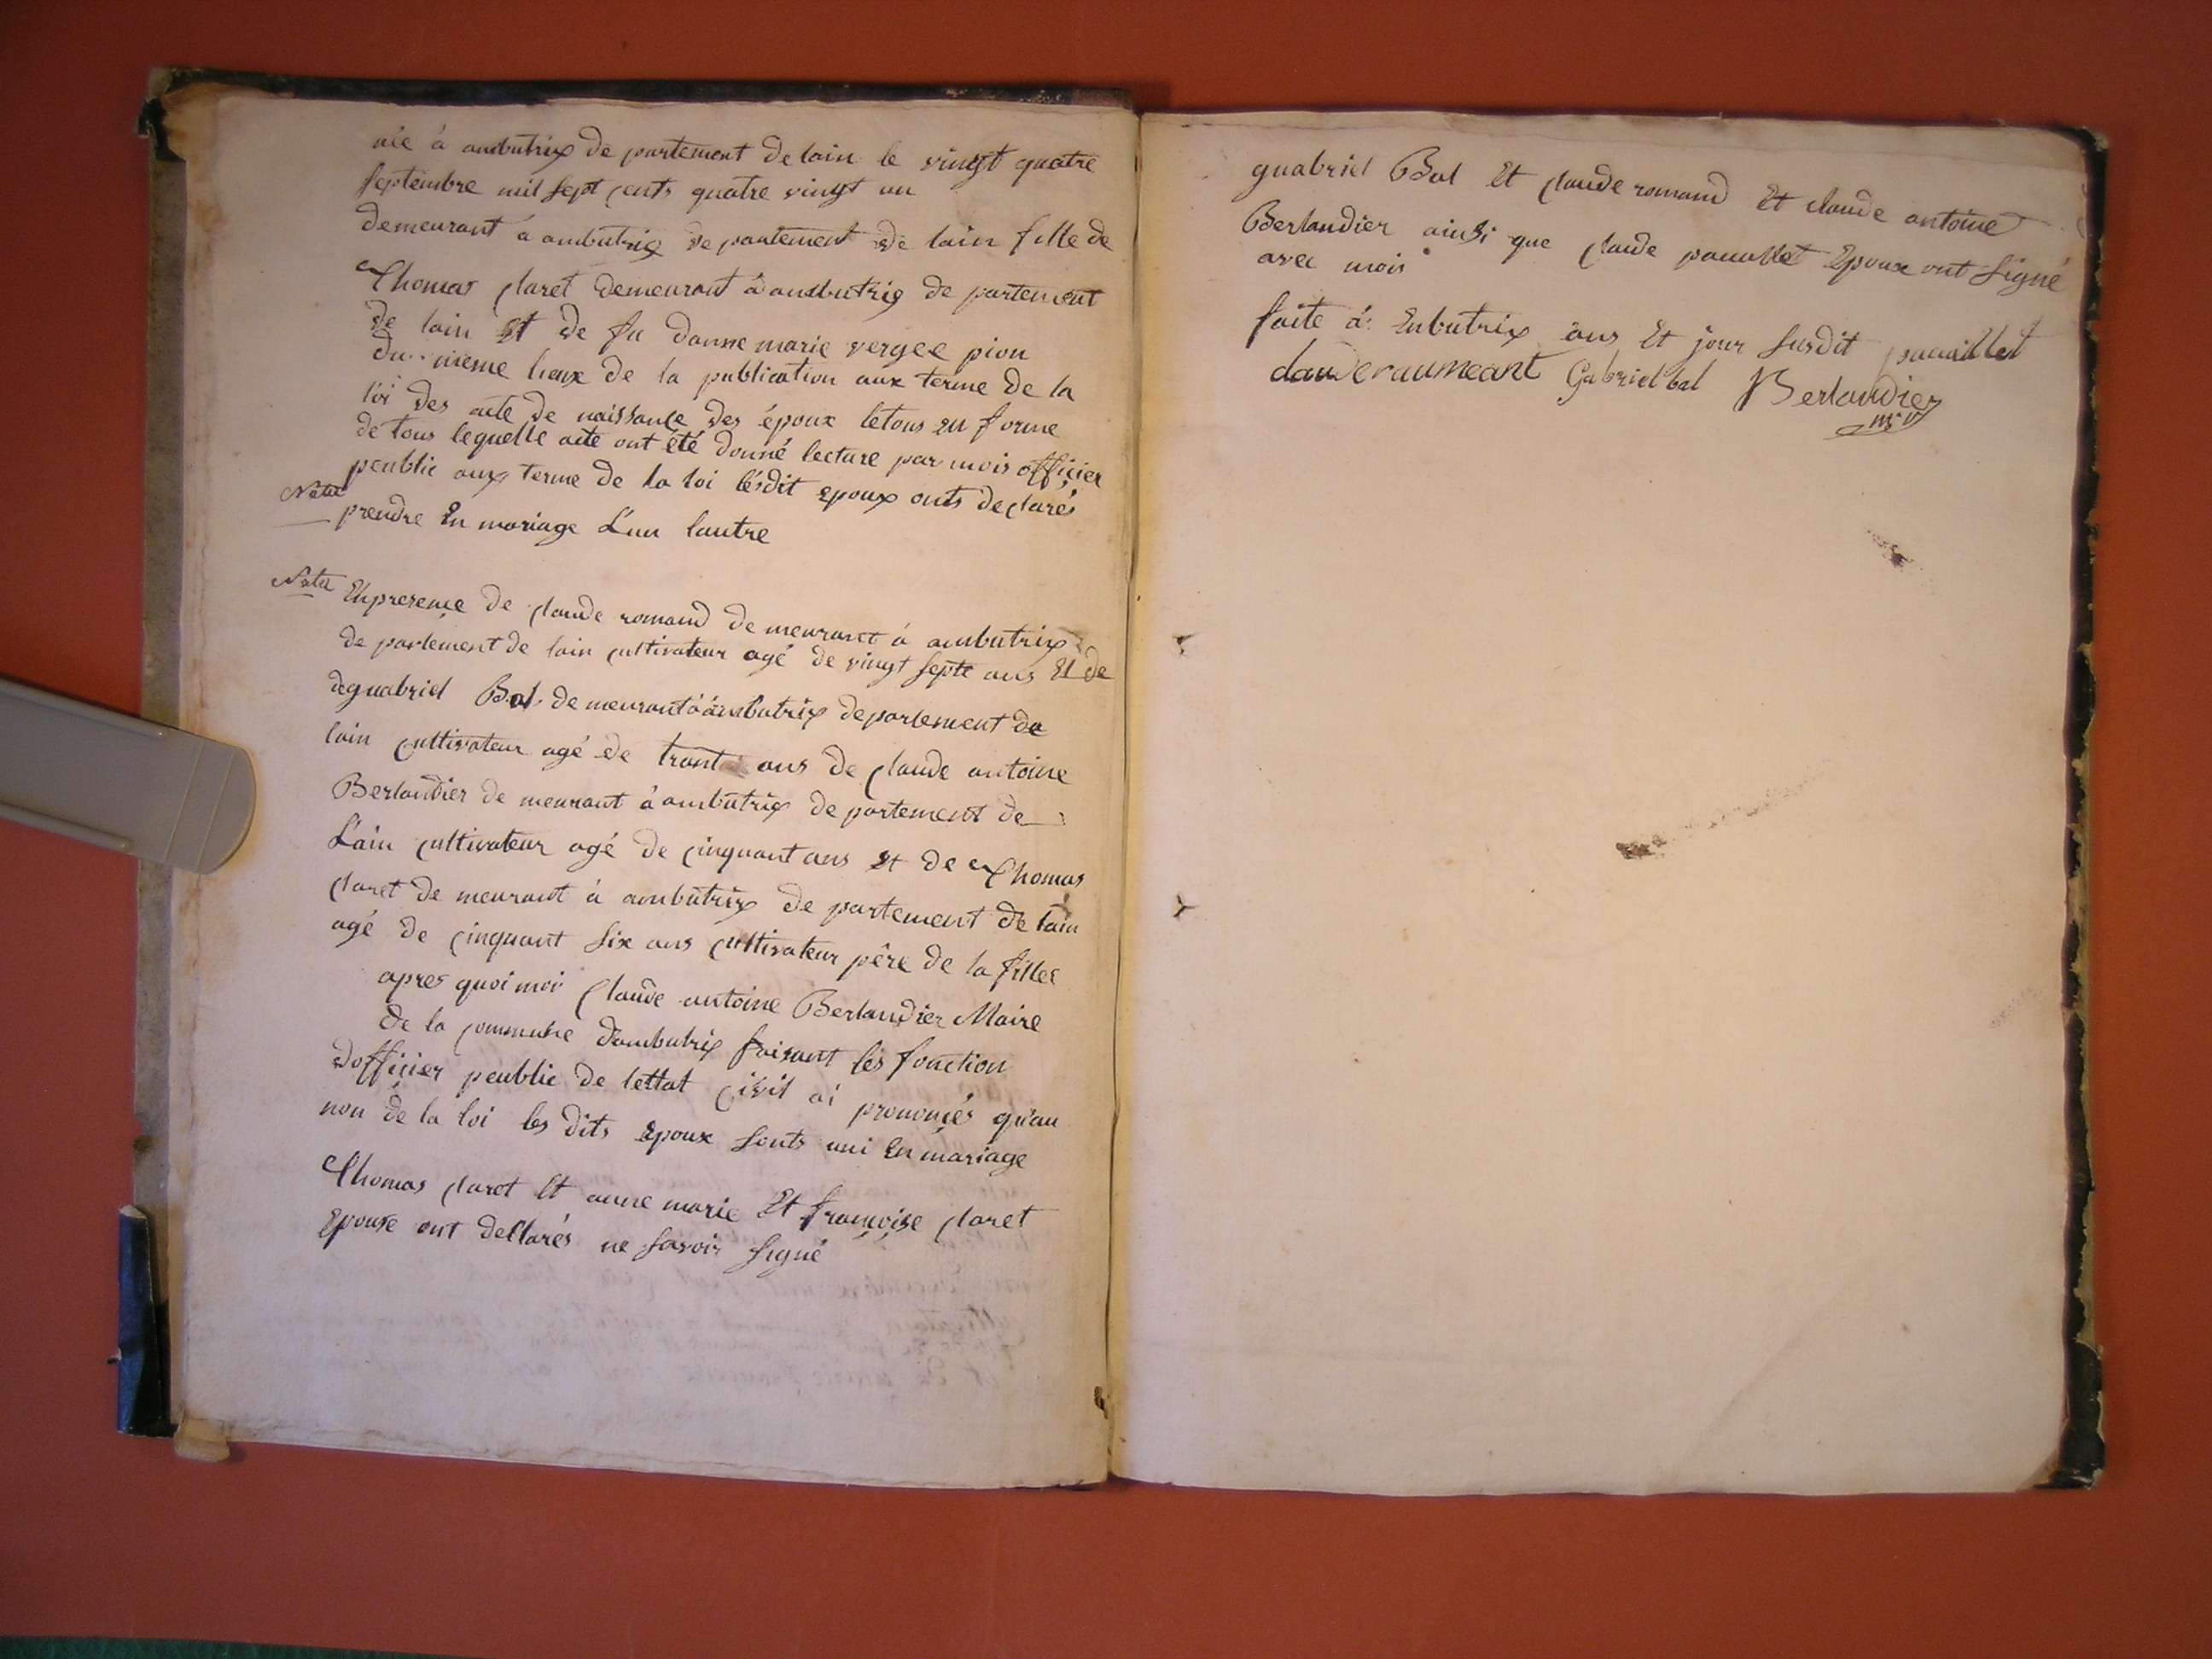 née à ambutrix de partement de lain le vingt quatre
septembre mil sept cents quatre vingt un
demeurant à ambutrix de partement de lain fille de
Thomas claret demeurant à ambutrix de partement
de lain Et de fu danne marie vergee pion
du meme lieux de la publication aux terme de la
loi des acte de naissance des époux letous en forme
de tous lequelle acte ont été donné lecture par mois officier
peublic aux terme de la loi lésdit epoux onts declarés
Nota prendre En mariage L'un lautre
Nota En presence de claude romand de meurant à ambutrix
de partement de lain cultivateur agé de vingt septe ans Et de
de guabriel Bal de meurant à ambutrix de partement de
lain cultivateur agé de trant ans de claude antoine
Berlandier de meurant à ambutrix de partement de
L'ain cultivateur agé de cinquant ans et de Thomas
claret de meurant à ambutrix de partement de lain
agé de cinquant six ans cultivateur pêre de la fillee
apres quoi moi claude antoine Berlandier Maire
de la commune d'ambutrix faisant les fonction
dofficier peublic de lettat civil ai prononcés qu'au
non de la loi les dits epoux sonts uni En mariage
Thomas claret Et anne marie Et françoise claret
Epouse ont dellarés ne savoir signé
guabriel Bal Et claude romand Et claude antoine
Berlandier ainsi que claude Epoux ont signé
avec mois
faite à Enbutrix ans Et jour susdit
claude raumeant Gabriel bal Berlandier